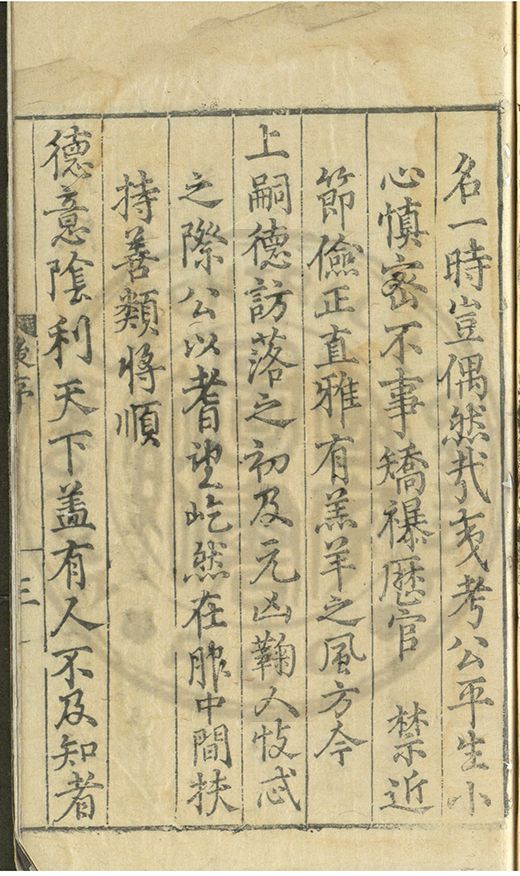 名一時豈偶然㢤夷考公平生小
心慎密不事矯襮歷官　禁近
節儉正直雅有羔羊之風方今
上嗣德訪落之初及元凶鞫人忮忒
之際公以耆望屹然在服中間扶
持善類將順
德意陰利天下盖有人不及知者
後序　三